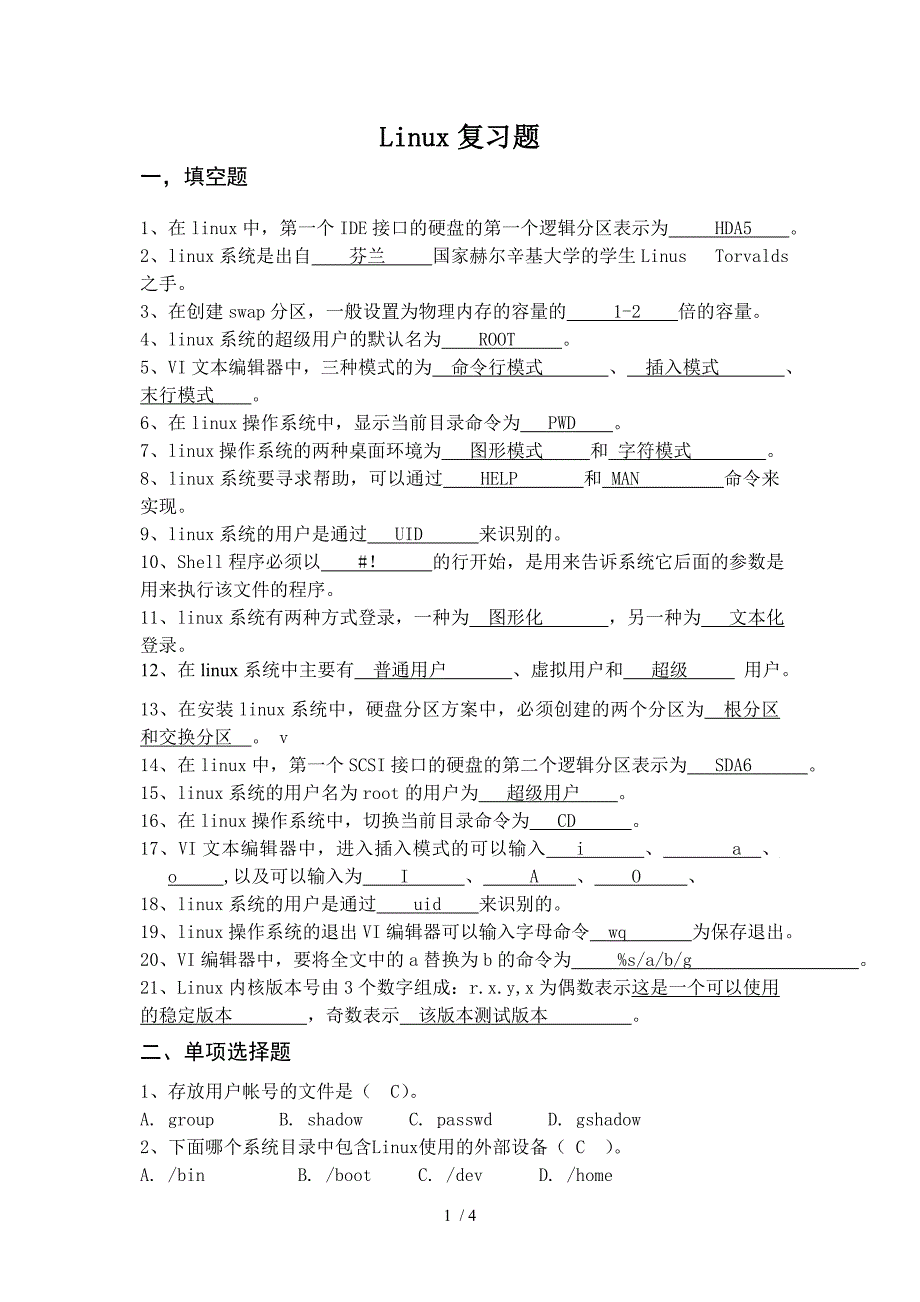 Linux复习题
一，填空题
1、在linux中，第一个IDE接口的硬盘的第一个逻辑分区表示为 HDA5 。
2、linux系统是出自 芬兰 国家赫尔辛基大学的学生Linus Torvalds
之手。
3、在创建swap分区，一般设置为物理内存的容量的 1-2 倍的容量。
4、linux系统的超级用户的默认名为 ROOT 。
5、VI文本编辑器中，三种模式的为 命令行模式 、 插入模式 、
末行模式 。
6、在linux操作系统中，显示当前目录命令为 PWD 。
7、linux操作系统的两种桌面环境为 图形模式 和 字符模式 。
8、linux系统要寻求帮助，可以通过 HELP 和 MAN 命令来
实现。
9、linux系统的用户是通过 UID 来识别的。
10、Shell程序必须以 #! 的行开始，是用来告诉系统它后面的参数是
用来执行该文件的程序。
11、linux系统有两种方式登录，一种为 图形化 ，另一种为 文本化
登录。
12、在linux系统中主要有 普通用户 、虚拟用户和 超级 用户。
13、在安装linux系统中，硬盘分区方案中，必须创建的两个分区为 根分区
和交换分区 。 v
14、在linux中，第一个SCSI接口的硬盘的第二个逻辑分区表示为 SDA6 。
15、linux系统的用户名为root的用户为 超级用户 。
16、在linux操作系统中，切换当前目录命令为 CD 。
17、VI文本编辑器中，进入插入模式的可以输入 i 、 a 、
o ,以及可以输入为 I 、 A 、 O 、
18、linux系统的用户是通过 uid 来识别的。
19、linux操作系统的退出VI编辑器可以输入字母命令 wq 为保存退出。
20、VI编辑器中，要将全文中的a替换为b的命令为 %s/a/b/g 。
21、Linux内核版本号由3个数字组成：r.x.y,x为偶数表示这是一个可以使用
的稳定版本 ，奇数表示 该版本测试版本 。
二、单项选择题
1、存放用户帐号的文件是（ C）。
A. group B. shadow C. passwd D. gshadow
2、下面哪个系统目录中包含Linux使用的外部设备（ C ）。
A. /bin B. /boot C. /dev D. /home
1 / 4